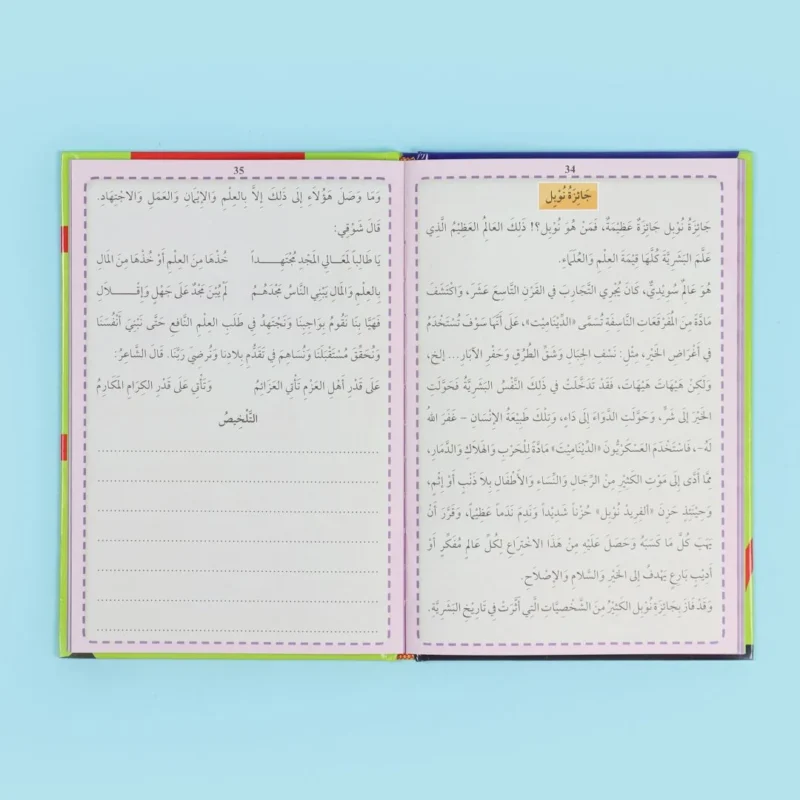 34
جَائِزَةُ نُوْبِل
جَائِزَةُ نُوْبِل جَائِزَةٌ عَظِيْمَةٌ، فَمَنْ هُوَ نُوْبِل؟! ذَلِكَ العَالِمُ العَظِيْمُ الَّذِي
عَلَّمَ البَشَرِيَّةَ كُلَّهَا قِيْمَةَ العِلْمِ وَالعُلَمَاءِ.
هُوَ عَالِمٌ سُوَيْدِيٌّ، كَانَ يُجْرِي التَّجَارِبَ فِي القَرْنِ التَّاسِعَ عَشَرَ، وَاكْتَشَفَ
مَادَّةً مِنَ المُفَرْقَعَاتِ النَّاسِفَةِ تُسَمَّى «الدِّيْنَامِيْت»، عَلَى أَنَّهَا سَوْفَ تُسْتَخْدَمُ
فِي أَغْرَاضِ الخَيْرِ، مِثْلَ: نَسْفِ الجِبَالِ وَشَقِّ الطُّرُقِ وَحَفْرِ الآبَارِ... إلخ،
وَلَكِنْ هَيْهَاتَ هَيْهَاتَ، فَقَدْ تَدَخَّلَتْ فِي ذَلِكَ النَّفْسُ البَشَرِيَّةُ فَحَوَّلَتِ
الخَيْرَ إِلَى شَرٍّ، وَحَوَّلَتِ الدَّوَاءَ إِلَى دَاءٍ، وَتِلْكَ طَبِيْعَةُ الإِنْسَانِ - غَفَرَ اللهُ
لَهُ-، فَاسْتَخْدَمَ العَسْكَرِيُّونَ «الدِّيْنَامِيْت» مَادَّةً لِلْحَرْبِ وَالهَلَاكِ وَالدَّمَارِ،
مِمَّا أَدَّى إِلَى مَوْتِ الكَثِيْرِ مِنَ الرِّجَالِ وَالنِّسَاءِ وَالأَطْفَالِ بِلاَ ذَنْبٍ أَوْ إِثْمٍ،
وَحِيْنَئِذٍ حَزِنَ «أَلفرِيد نُوْبِل» حُزْناً شَدِيْداً وَنَدِمَ نَدَماً عَظِيْماً، وَقَرَّرَ أَنْ
يَهَبَ كُلَّ مَا كَسَبَهُ وَحَصَلَ عَلَيْهِ مِنْ هَذَا الاخْتِرَاعِ لِكُلِّ عَالِمٍ مُفَكِّرٍ أَوْ
أَدِيْبٍ بَارِعٍ يَهْدِفُ إِلَى الخَيْرِ وَالسَّلَامِ وَالإِصْلَاحِ.
وَقَدْ فَازَ بِجَائِزَةِ نُوْبِل الكَثِيْرُ مِنَ الشَّخْصِيَّاتِ الَّتِي أَثَّرَتْ فِي تَارِيْخِ البَشَرِيَّةِ.
35
وَمَا وَصَلَ هَؤُلَاءِ إِلَى ذَلِكَ إِلاَّ بِالعِلْمِ وَالإِيْمَانِ وَالعَمَلِ وَالاجْتِهَادِ.
قَالَ شَوْقِي:
يَا طَالِباً لِمَعَالِي المَجْدِ مُجْتَهِــــداً خُذْهَا مِنَ العِلْمِ أَوْ خُذْهَا مِنَ المَالِ
بِالعِلْمِ وَالمَالِ يَبْنِي النَّاسُ مَجْدَهُـمُ لَمْ يُبْنَ مَجْدٌ عَلَى جَهْلٍ وَإِقْـــلَالِ
فَهَيَّا بِنَا نَقُومُ بِوَاجِبِنَا وَنَجْتَهِدُ فِي طَلَبِ العِلْمِ النَّافِعِ حَتَّى نَبْنِيَ أَنْفُسَنَا
وَنُحَقِّقَ مُسْتَقْبَلَنَا وَنُسَاهِمَ فِي تَقَدُّمِ بِلَادِنَا وَنُرْضِيَ رَبَّنَا. قَالَ الشَّاعِرُ:
عَلَى قَدْرِ أَهْلِ العَزْمِ تَأْتِي العَزَائِمُ وَتَأْتِي عَلَى قَدْرِ الكِرَامِ المَكَارِمُ
التَّلْخِيصُ